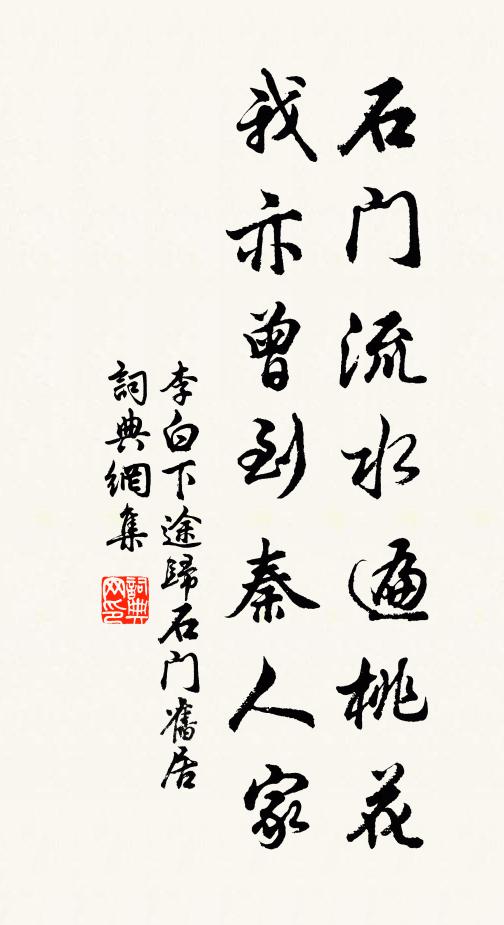 石门流水遍桃花
我亦曾到秦人家
李白下途歸石门舊居
詞典網集
詞典
网印